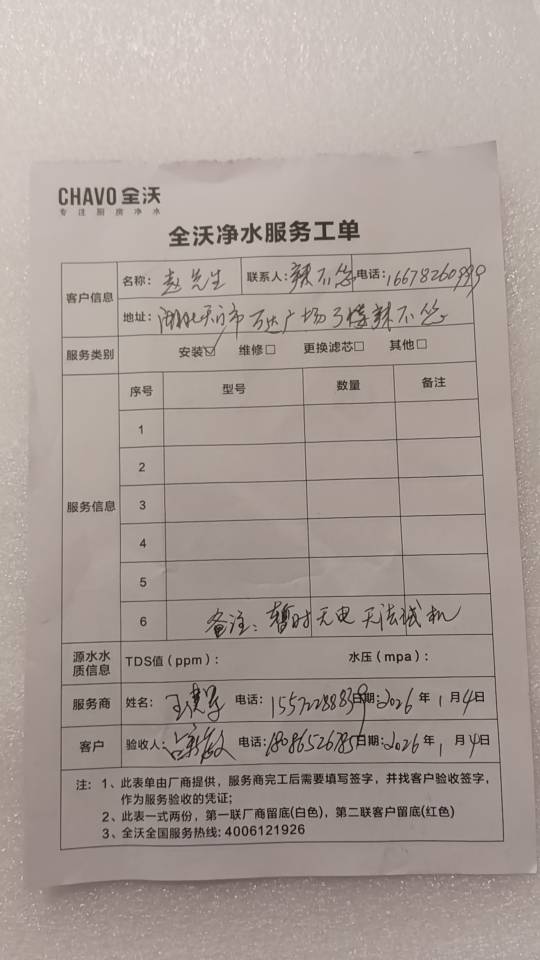 CHAVO 全沃
专注厨房净水
全沃净水服务工单
客户信息 名称: 赵先生 联系人: 辣不怂 电话: 16678260999
地址: 湖北天门市万达广场3楼辣不怂
服务类别 安装☑ 维修□ 更换滤芯□ 其他□
服务信息 序号 型号 数量 备注
1
2
3
4
5
6 备注: 暂时无电 无法试机
源水水质信息 TDS值 (ppm) : 水压 (mpa) :
服务商 姓名: 王 电话: 15572288839 日期: 2026 年 1 月 4 日
客户 验收人: 电话: 18086526785 日期: 2026 年 1 月 4 日
注: 1、此表单由厂商提供，服务商完工后需要填写签字，并找客户验收签字，
作为服务验收的凭证;
2、此表一式两份，第一联厂商留底(白色)，第二联客户留底(红色)
3、全沃全国服务热线: 4006121926